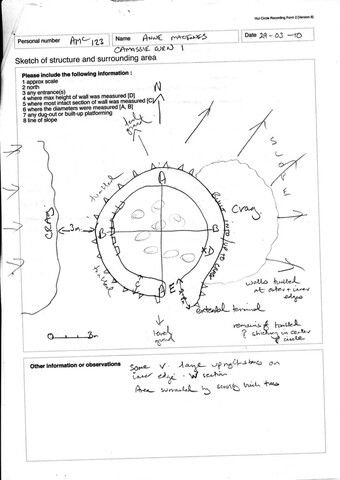 Hut Circle Recording Form 2 [Version A]
Personal number AMC 123
Name ANNE MACINNES
Date 29-03-10
CAMASSIE BURN 1
Sketch of structure and surrounding area
Please include the following information :
1 approx scale
2 north
3 any entrance(s)
4 where max height of wall was measured [D]
5 where most intact section of wall was measured [C]
6 where the diameters were measured [A, B]
7 any dug-out or built-up platforming
8 line of slope
N
level grnd
SLOPE
tumbled
A
Crag
CRAG
3m
B
B
D
tumbled
C
A
E
extended terminal
walls tumbled
at outer + inner
edges
level
grnd
remains of tumbled
? shieling in center
of circle
0 3m
Other information or observations
Some v. large upright stones on
inner edge - W section
Area surrounded by scrubby birch trees